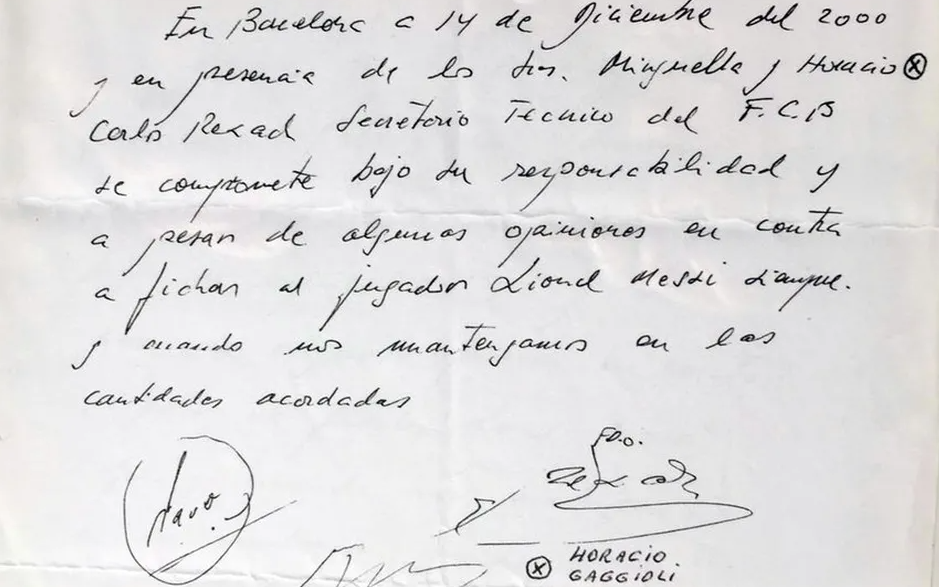 En Barcelona a 14 de Diciembre del 2000
y en presencia de los Srs. Minguella y Horacio ⊗
Carlos Rexach Secretario Tecnico del F.C.B
se compromete bajo su responsabilidad y
a pesar de algunas opiniones en contra
a fichar al jugador Lionel Messi siempre.
y cuando nos mantengamos en las
cantidades acordadas
FDO.
⊗ HORACIO
GAGGIOLI